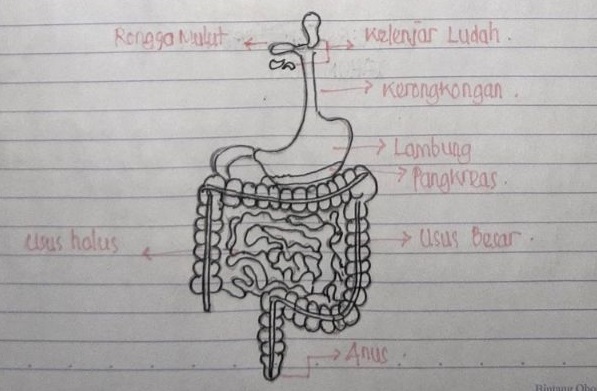 Rongga Mulut
Kelenjar Ludah.
Kerongkongan.
Lambung
Pangkreas.
Usus halus
Usus Besar.
Anus.
Bintang Obo